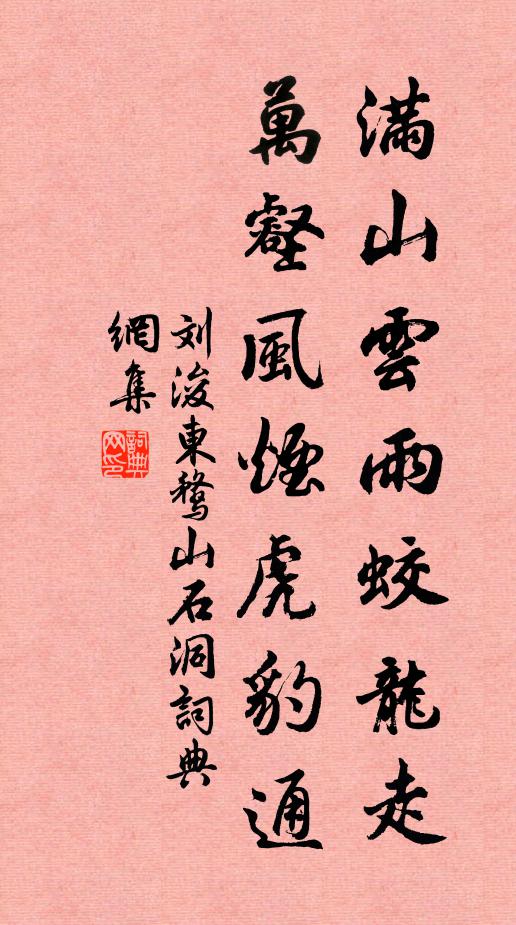 滿山雲雨蛟龍走
萬壑風煙虎豹通
刘浚東鹜山石洞詞典
網集
詞典网印